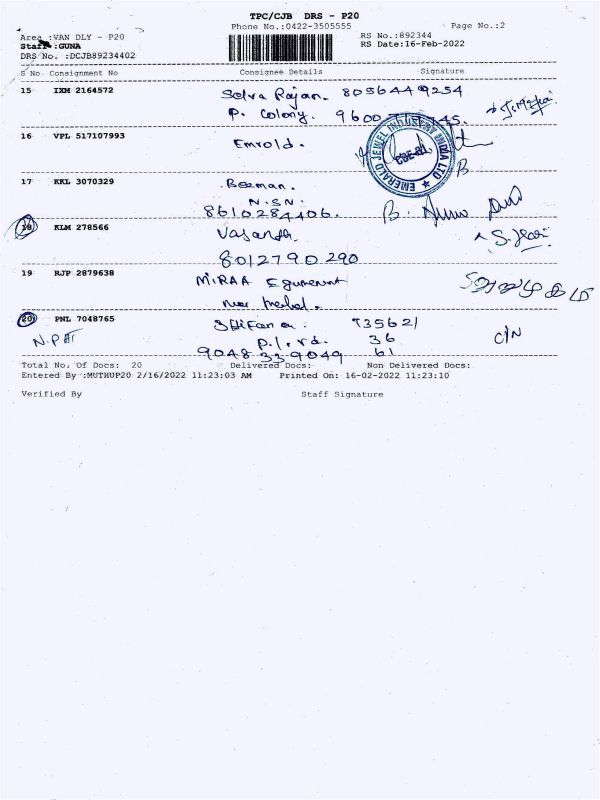 TPC/CJB DRS - P20
Phone No.:0422-3505555 Page No.:2
Area :VAN DLY - P20 RS No.:892344
Staff :GUNA RS Date:16-Feb-2022
DRS No. :DCJB89234402
S No Consignment No Consignee Details Signature
15 IXM 2164572 Selva Rajan. 8056449254
P. Colony. 9600
16 VPL 517107993 Emrold.
EMERALD JEWEL INDUSTRY INDIA LTD
17 KKL 3070329 Bezman.
N.S.N.
8610284406. B.
18 KLM 278566 Vasanth. S.
8012790290
19 RJP 2879638 MIRAA
near
20 PNL 7048765 735621
N.P P.l.rd. 36 C/N
9048339049 61
Total No. Of Docs: 20 Delivered Docs: Non Delivered Docs:
Entered By :MUTHUP20 2/16/2022 11:23:03 AM Printed On: 16-02-2022 11:23:10
Verified By Staff Signature